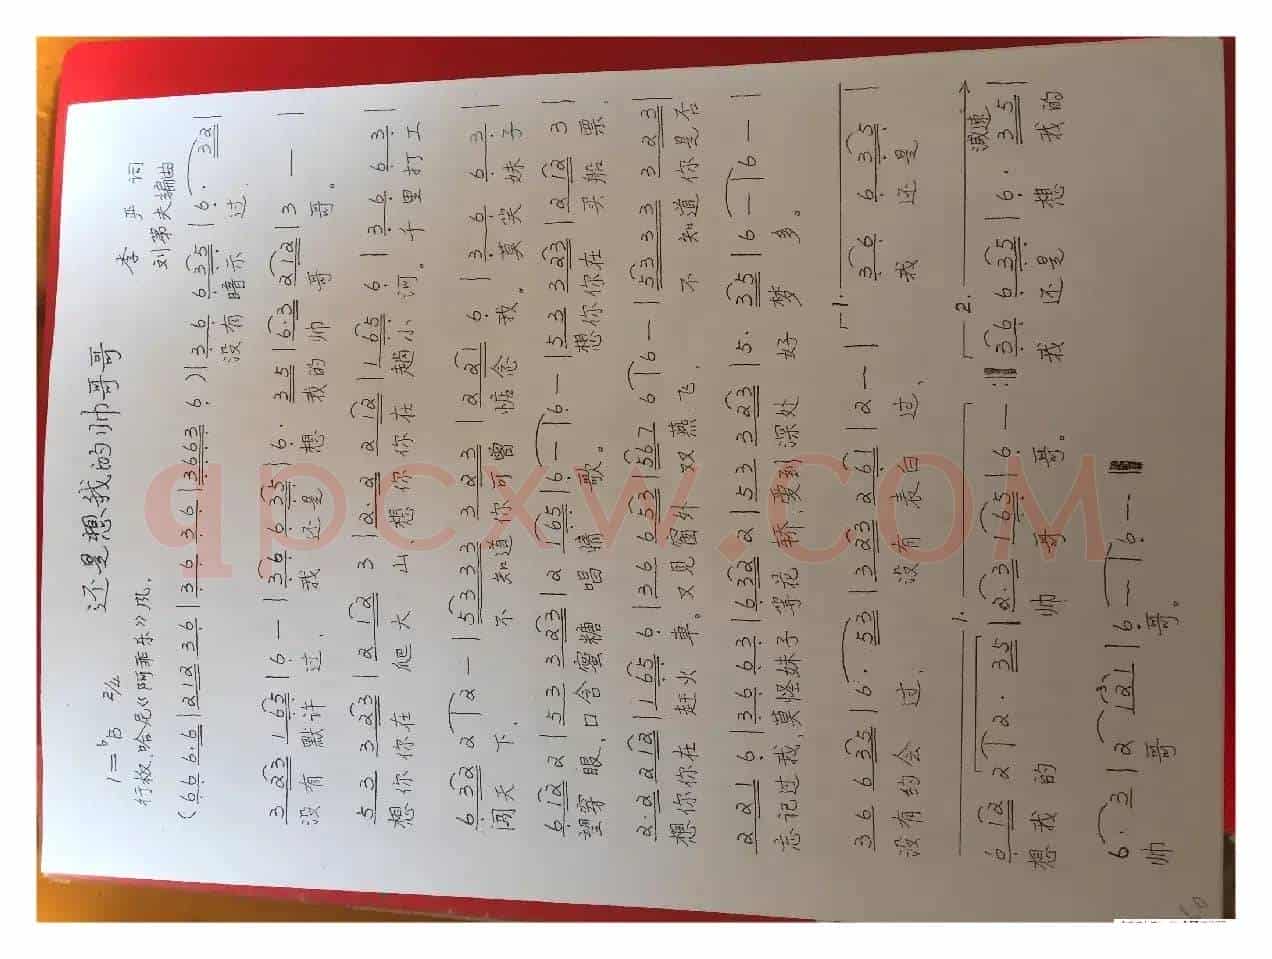 还是想我的帅哥哥
1=♭B 2/4
李平 词
行板、哈尼《阿乖乐》风。
刘第夫编曲
(6 6 6·6 | 2 1 2 3 6 | 3 6 3 6 | 3 6 6 3 6 ) | 3 6 6 3 5 | 6· 3 2 |
没有暗示过
3 2 3 1 6 5 | 6 — | 3 6 6 3 5 | 6· 3 5 | 6·3 2 1 2 | 3 — |
没有默许过、我还是想我的帅哥哥。
5 3 3 2 3 | 2 1 2 3 | 2·2 2 1 2 | 1 6 5 6 | 3 6 6 3 |
想你你在爬大山、想你你在趟小河。千里打工
6 3 2 2 | 2 — | 5 3 3 3 3 2 3 | 2 2 1 6 | 3 6 6 3 |
闯天下、不知道你可曾惦念我。莫笑妹子
6 1 2 2 | 5 3 3 2 3 | 2 1 6 5 | 6 — | 6 — | 5 3 3 2 3 | 2 1 2 3 |
望穿眼,口含蜜糖唱情歌。想你你在买船票、
2·2 2 1 2 | 1 6 5 6 | 3 6 6 5 3 | 5 6 7 6 | 6 — | 5 3 3 3 3 2 3 |
想你你在赶火车。又见窗外双燕飞、不知道你是否
2 2 1 6 | 3 6 6 3 | 6 3 2 2 | 5 3 3 2 3 | 5· 3 5 | 6 — | 6 — |
忘记过我,莫怪妹子等花轿、爱到深处好梦多。
3 6 6 3 5 | 6· 5 3 | 3 2 3 2 6 1 | 2 — | 1. 3 6 6 3 5 |
没有约会过、没有表白过、我还是
6 1 2 2 | 2· 3 5 | 2·3 1 6 5 | 6 — :‖ 2. 3 6 6 3 5 | 6· 3 5 |
1.
减速
想我的帅哥哥。我还是想我的
6· 3 | 2 1 2 1 | 6 — | 6 — ‖
(3)
帅哥哥。
qpcxw.COM